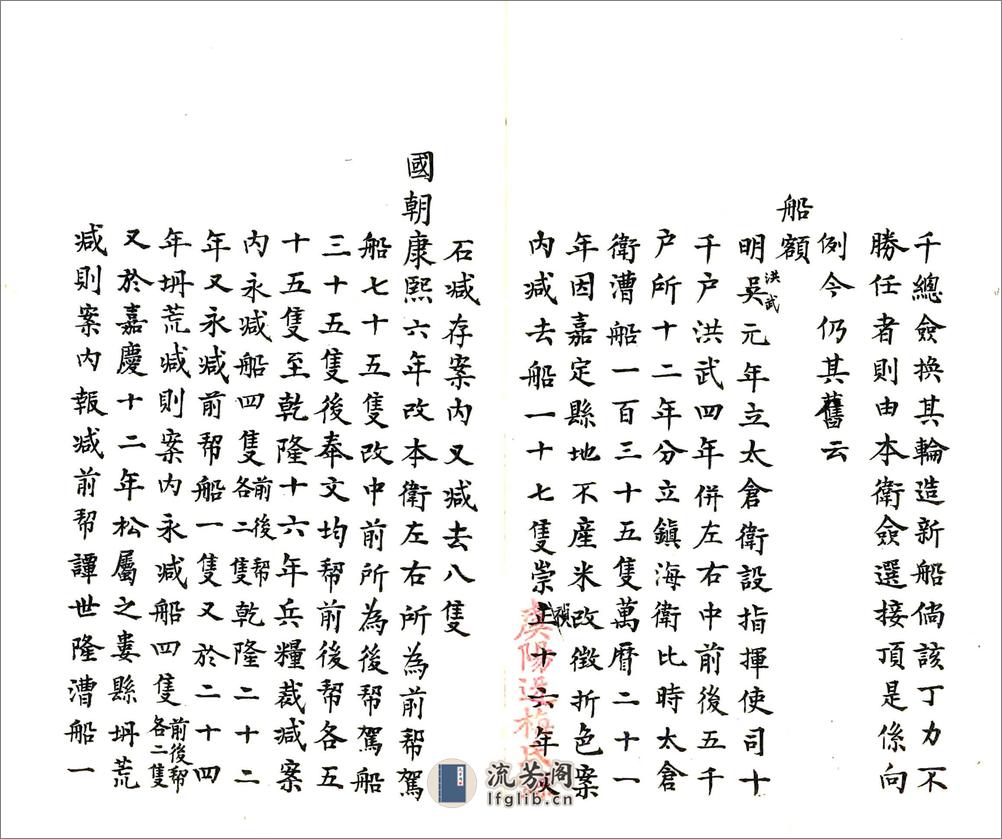 千總僉換其輪造新船倘該丁力不
勝任者則由本衛僉選接頂是係向
例今仍其舊云
船額
明吳洪武元年立太倉衛設指揮使司十
千戶洪武四年併左右中前後五千
戶所十二年分立鎮海衛比時太倉
衛漕船一百三十五隻萬曆二十一
年因嘉定縣地不產米改徵折色案
內減去船一十七隻崇正禎十六年
石減存案內又減去八隻
國朝康熙六年改本衛左右所為前帮駕
船七十五隻改中前所為後帮駕船
三十五隻後奉文均帮前後帮各五
十五隻至乾隆十六年兵糧裁減案
內永減船四隻前後帮各二隻乾隆二十二
年又永減前帮船一隻又於二十四
年坍荒減則案內永減船四隻前後帮各二隻
又於嘉慶十二年松屬之婁縣坍荒
減則案內報減前帮譚世隆漕船一
虞陽
流芳阁
lfglib.cn